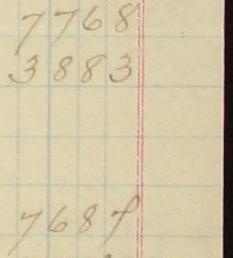 7768
3883
768